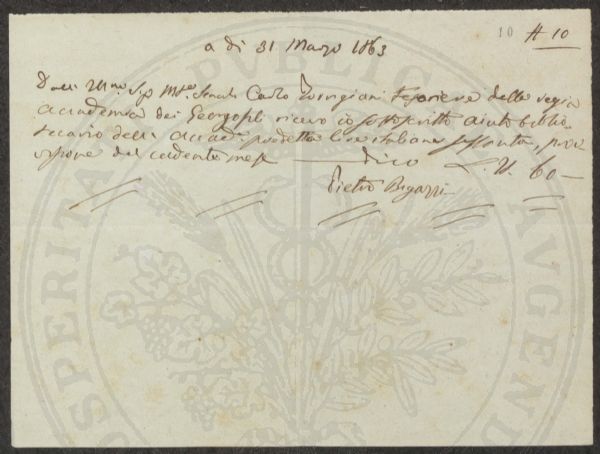 10 # 10
a dì 31 Marzo 1863
Dall' Ill.mo Sig. Carlo Torrigiani Tesoriere della regia
Accademia dei Georgofili ricevo io sottoscritto aiuto biblio-
tecario dell' Accad.a predetta lire italiane sessanta, prov-
visione del cadente mese — Dico L. It. 60 —
Pietro Bigazzi
PROSPERITATI PUBLICAE AUGENDAE